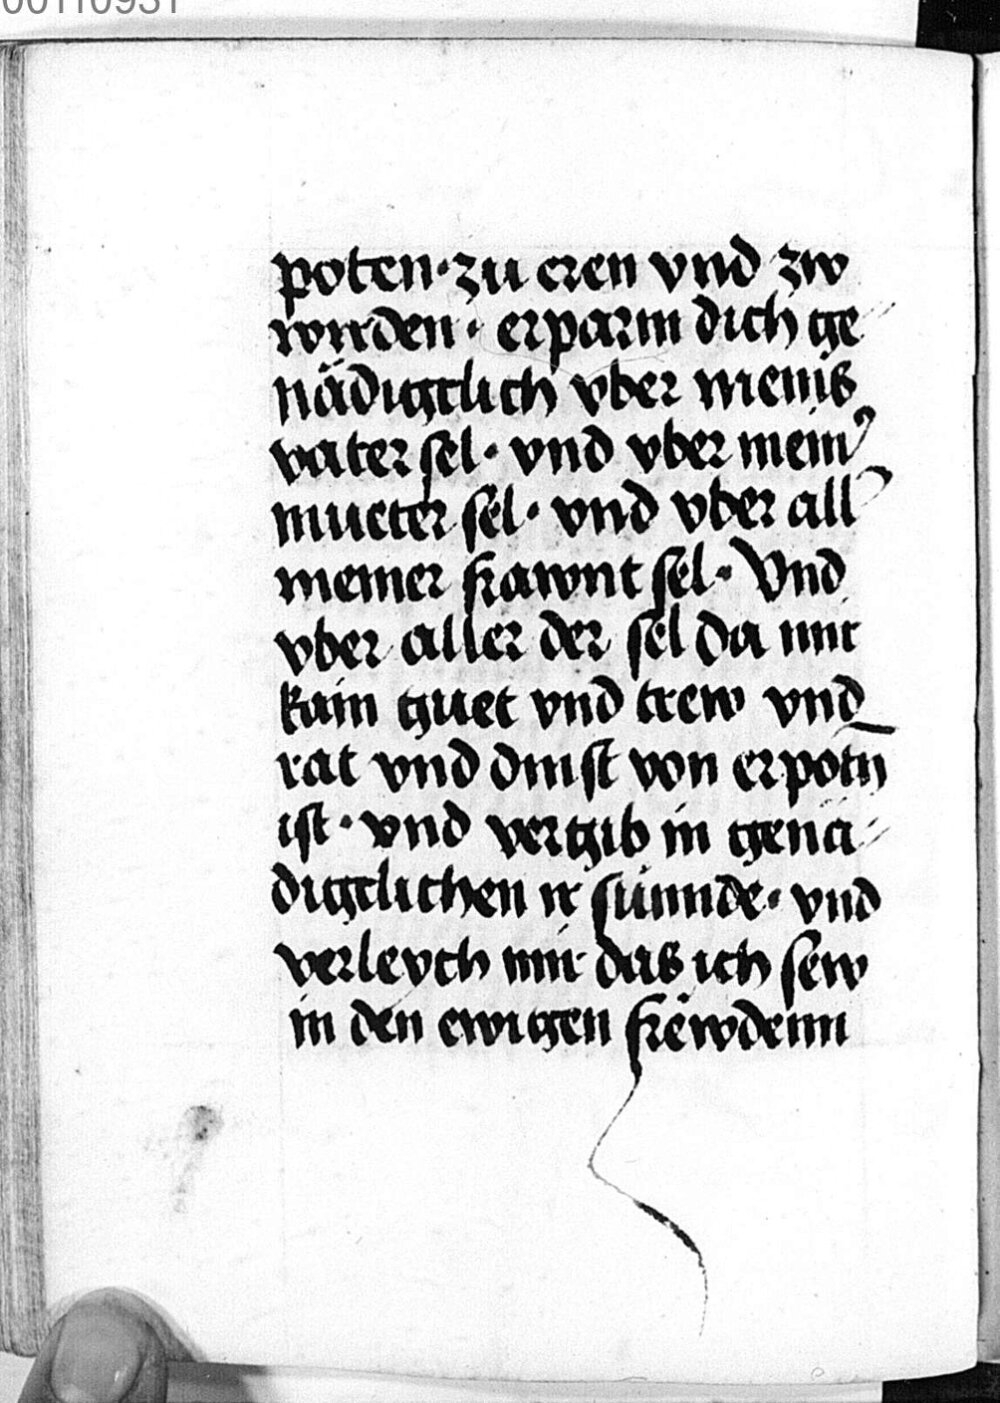 00110931
poten · zu eren vnd zw
wirden · erparm dich ge
nädigclich vber meins
vater sel · vnd vber mein
mueter sel · vnd vber all
meiner frawnt sel · Vnd
vber aller der sel da mir
kain guet vnd trew vnd
rat vnd dinst von erpotn
ist · vnd vergib in genä
digclichen ir sünnde · vnd
verleych mir das ich sew
in den ewigen frëwdenn